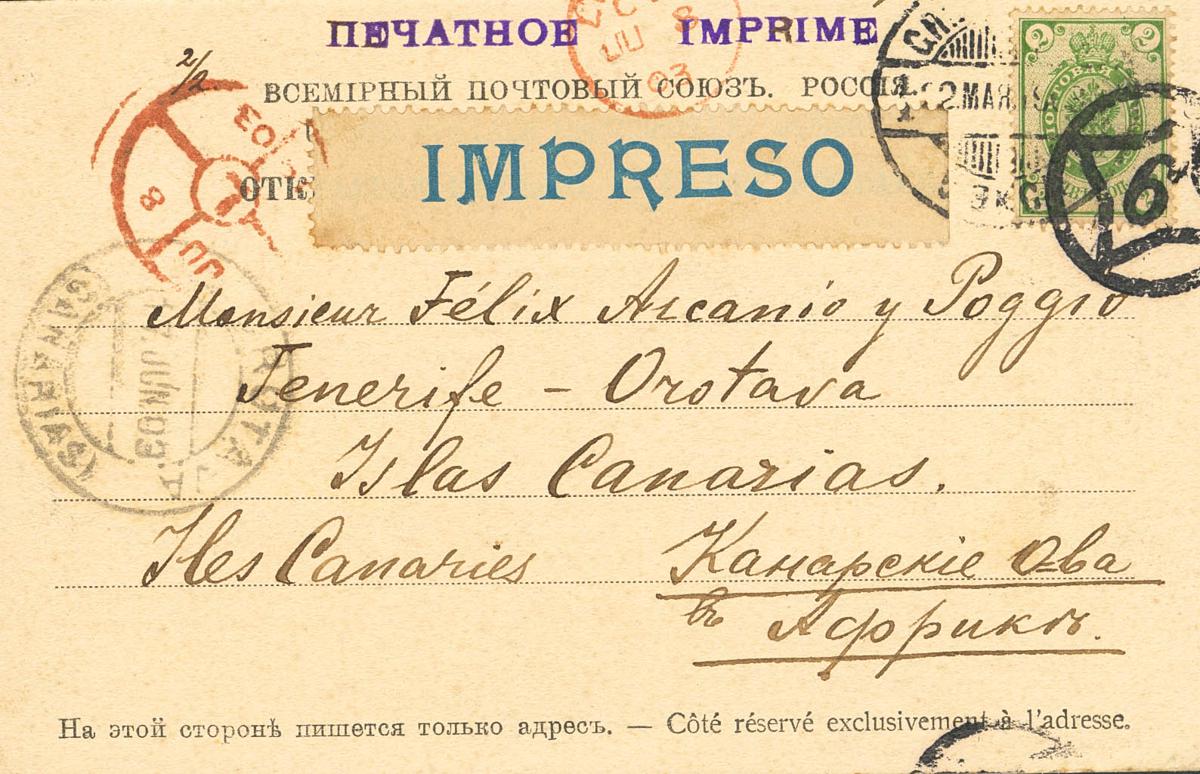 ПЕЧАТНОЕ IMPRIME
2/2
ВСЕМІРНЫЙ ПОЧТОВЫЙ СОЮЗЪ. РОССІЯ.
IMPRESO
2 2
2 MAR
6
03
8
JU
JU 8
03
(CANARIAS)
JUN 03
Monsieur Félix Ascanio y Poggio
Tenerife – Orotava
Islas Canarias.
Iles Canaries Канарскіе О-ва
въ Африкѣ.
На этой сторонѣ пишется только адресъ. — Côté réservé exclusivement à l'adresse.